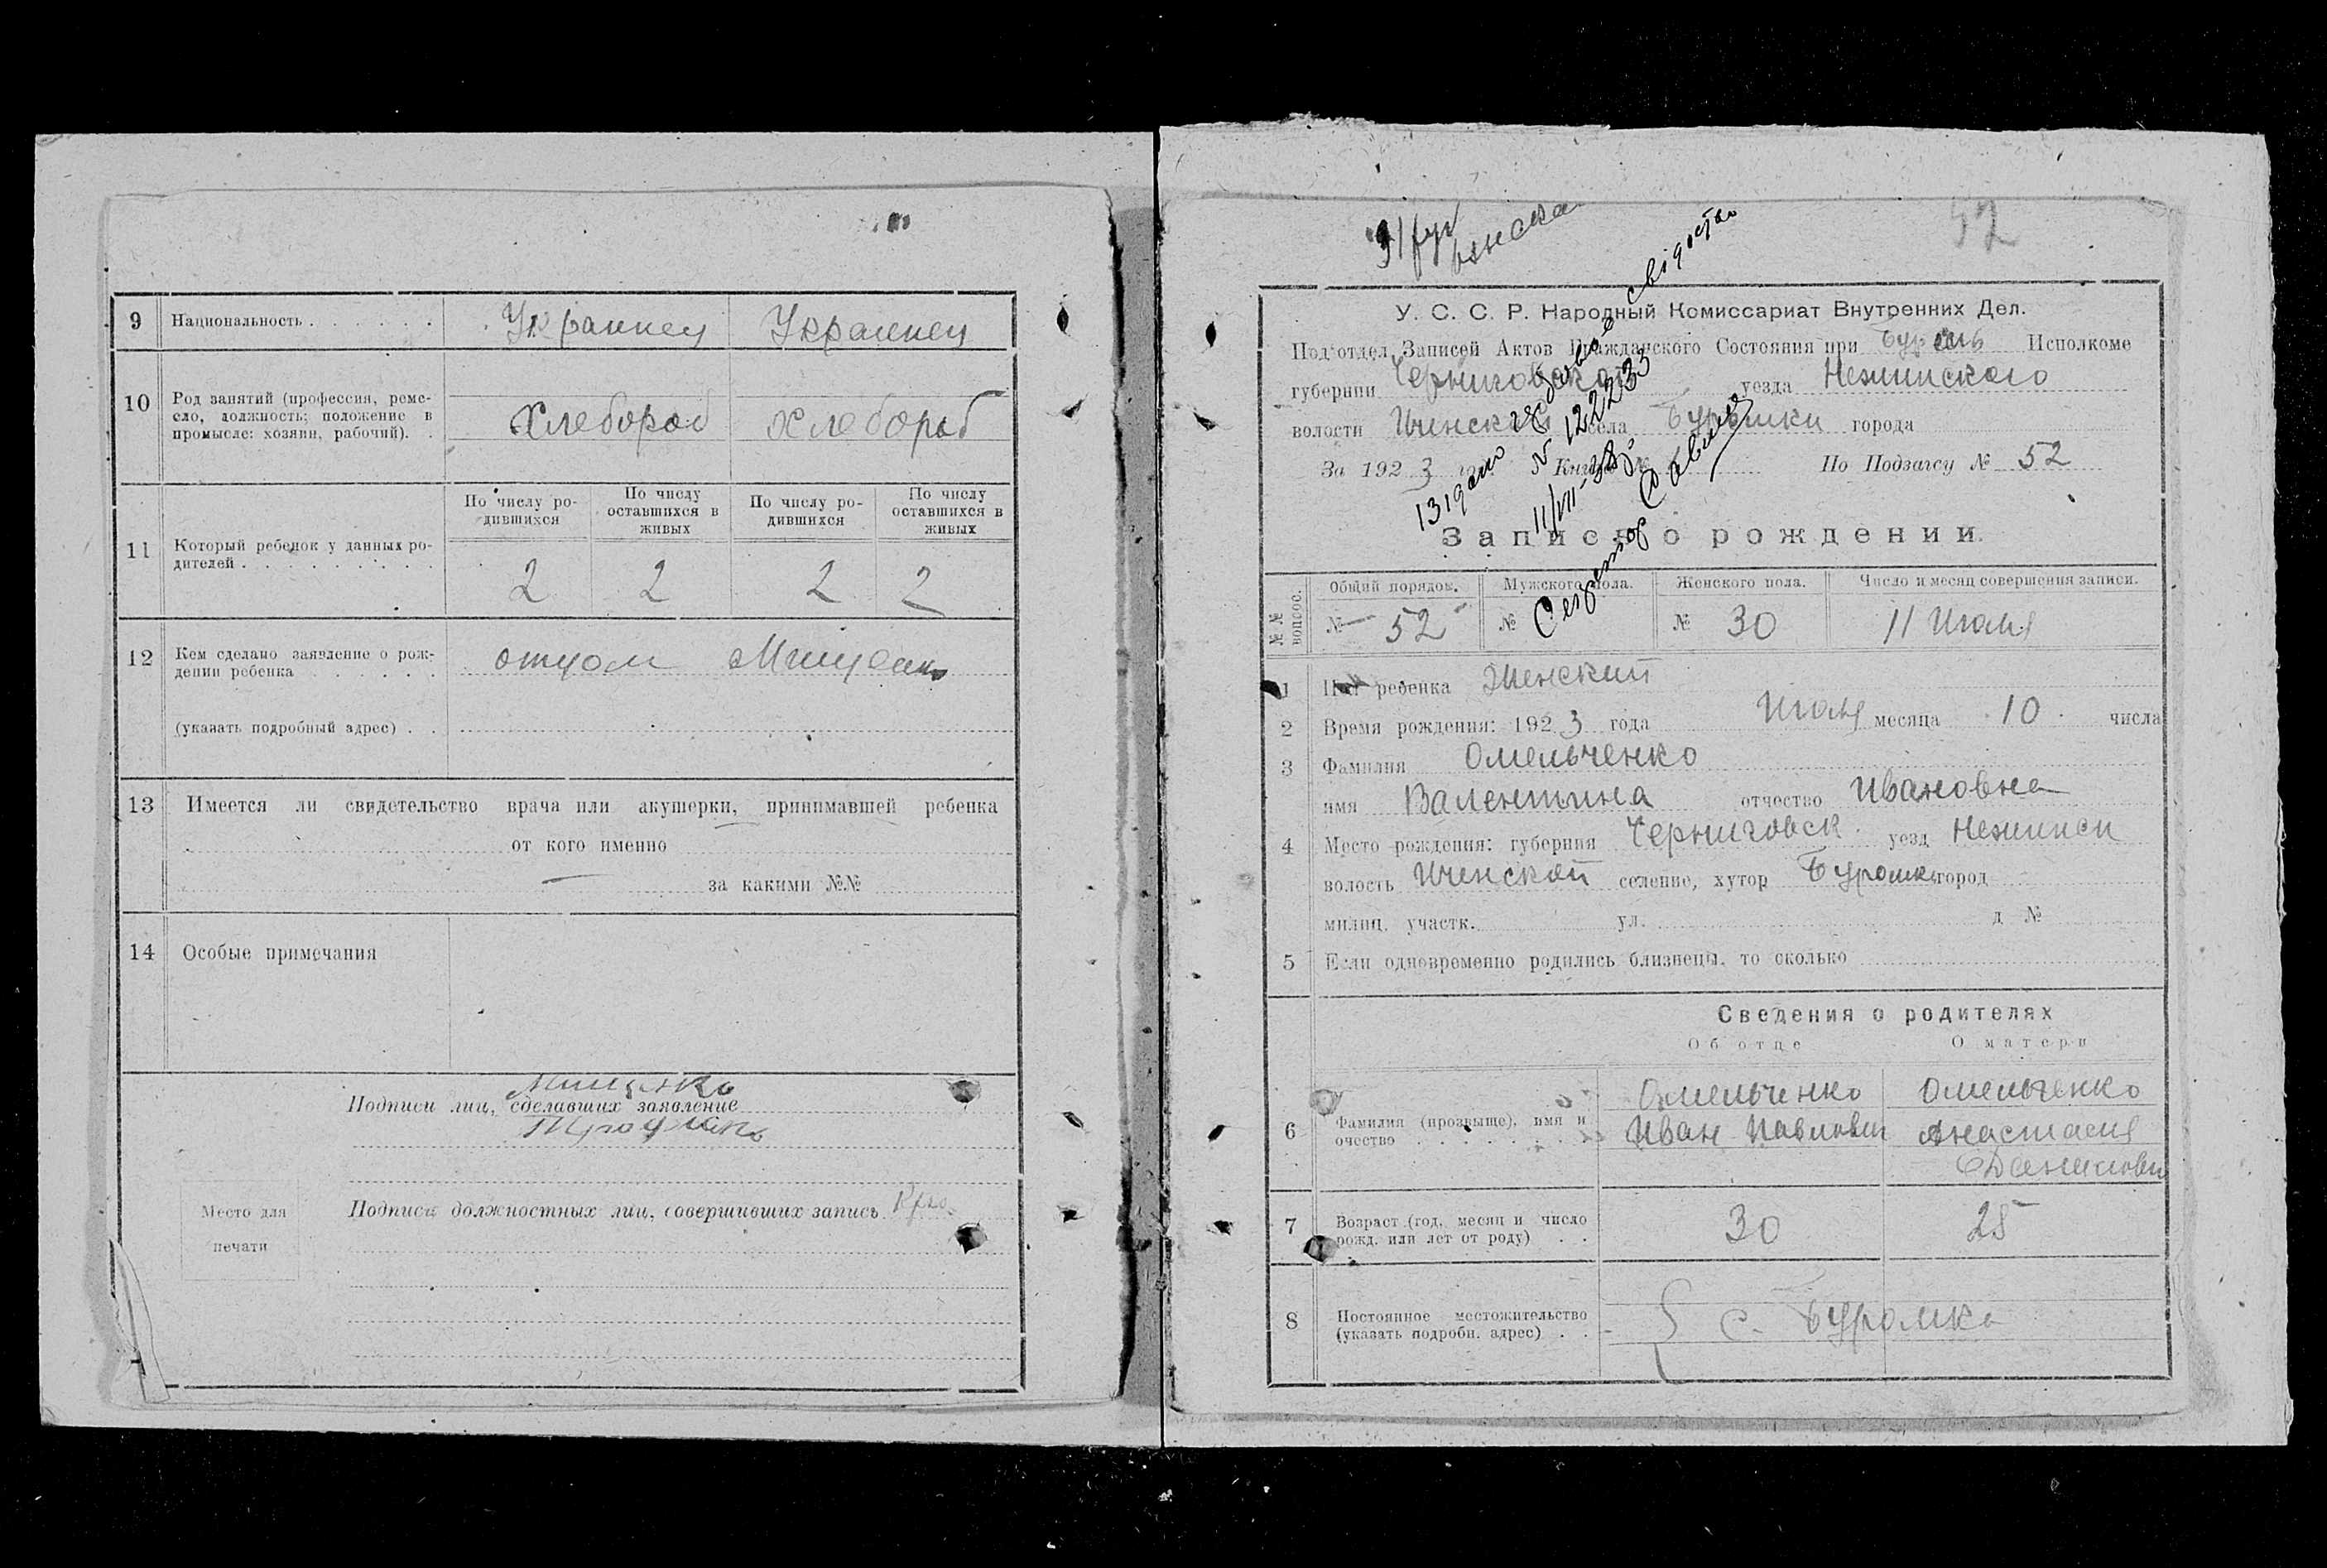 9 Национальность Украинец Украинец
10 Род занятий (профессия, реме-
сло, должность; положение в
промысле: хозяин, рабочий).
Хлебороб Хлебороб
По числу ро-
дившихся
По числу
оставшихся в
живых
По числу ро-
дившихся
По числу
оставшихся в
живых
11 Который ребенок у данных ро-
дителей
2 2 2 2
12 Кем сделано заявление о рож-
дении ребенка
отцом
(указать подробный адрес)
13 Имеется ли свидетельство врача или акушерки, принимавшей ребенка
от кого именно
за какими №№
14 Особые примечания
Подписи лиц, сделавших заявление
Место для
печати
Подписи должностных лиц, совершивших запись
52
У. С. С. Р. Народный Комиссариат Внутренних Дел.
Подотдел Записей Актов Гражданского Состояния при Исполкоме
губернии Черниговской уезда Нежинского
волости Иченской села города
За 1923 По Подзагсу № 52
свідоцтво
N 122233
11/VII-38
Секретар
Запись о рождении.
№№ вопрос.
Общий порядок. Мужского пола. Женского пола. Число и месяц совершения записи.
№ 52 № № 30 11 Июля
1 Пол ребенка Женский
2 Время рождения: 1923 года Июля месяца 10 числа
3 Фамилия Омельченко
имя Валентина отчество Ивановна
4 Место рождения: губерния Черниговск. уезд Нежинск
волость Иченской селение, хутор Буромка город
милиц. участк. ул. д №
5 Если одновременно родились близнецы, то сколько
Сведения о родителях
Об отце О матери
6 Фамилия (прозвыще), имя и
очество
Омельченко
Иван Павлович
Омельченко
Анастасия
Данилов
7 Возраст (год, месяц и число
рожд. или лет от роду)
30 25
8 Постоянное местожительство
(указать подробн. адрес)
с. Буромка